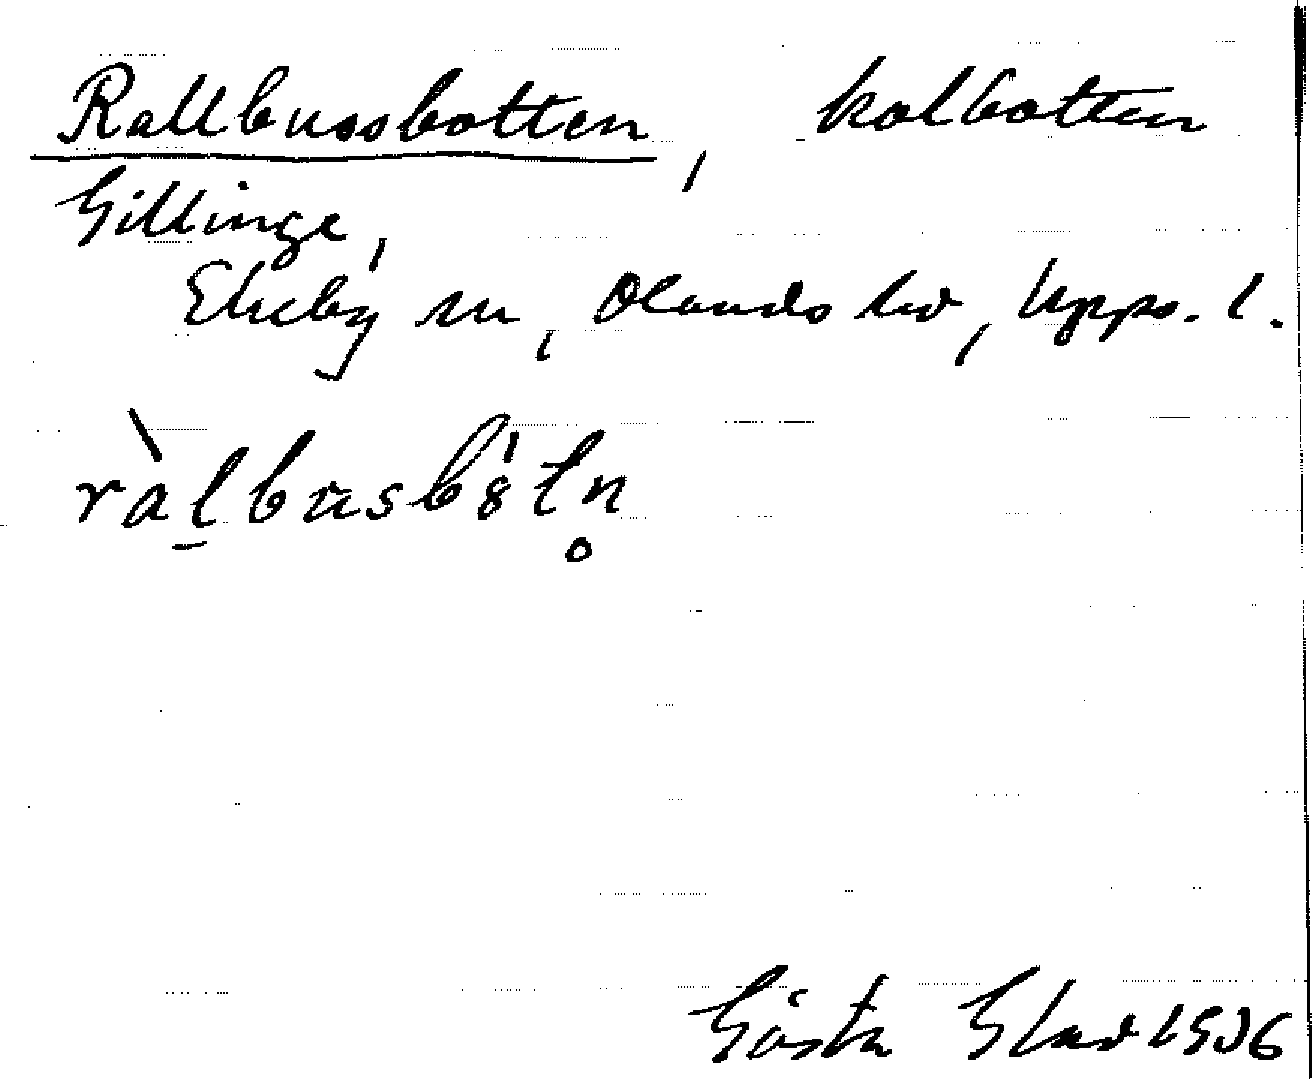 Rallbussbotten, kolbotten
Gillinge,
Ekeby sn, Olands hd, Upps. l.
ràlbusbòtn̥
Gösta Elav 1936